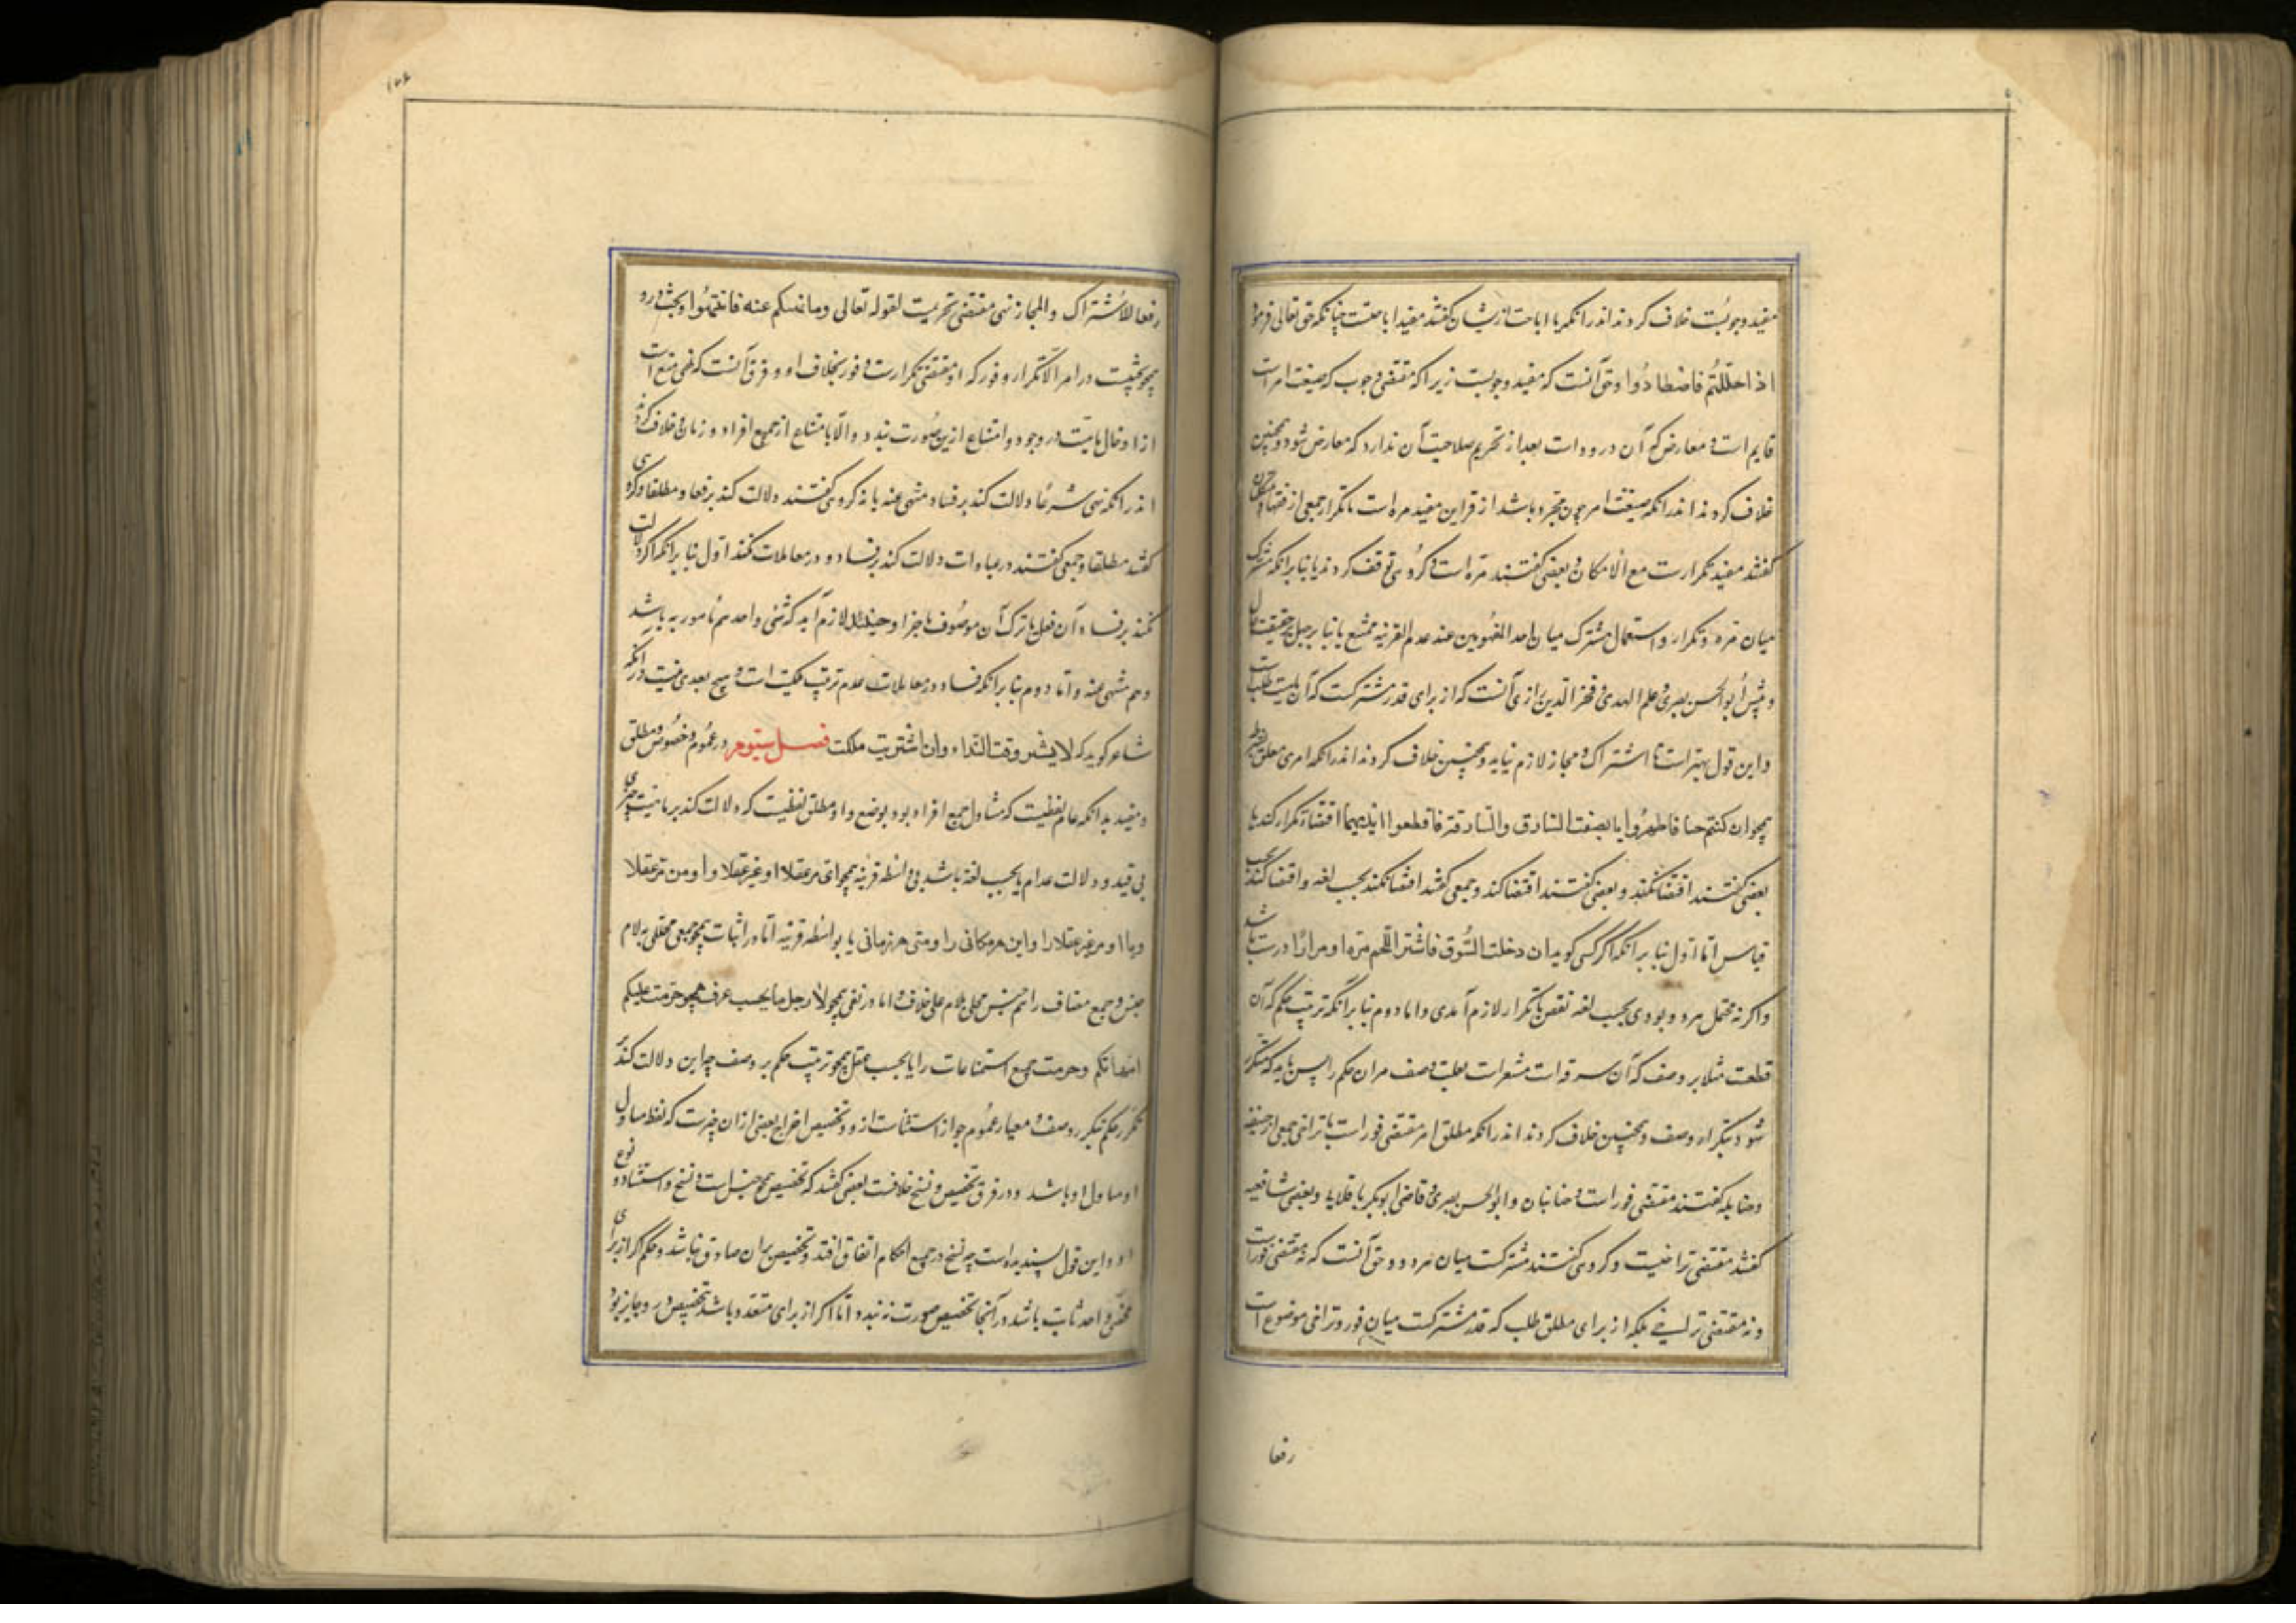 مفید وجوبست خلاف کردند اندر انکه یا اباحت ازیشان کفتند مفید اباحتست چنانکه حق تعالی فرمود
اذا حللتم فاصطادوا و حق آنست که مفید وجوبست زیرا که مقتضی وجوب که صیغت امر است
قایم است و معارض که آن وروداست بعد از تحریم صلاحیت آن ندارد که معارض شود و همچنین
خلاف کردند اندر انکه صیغت امر چون مجرد باشد از قراین مفید مره است یا تکرار جمعی از فقها و متکلمان
کفتند مفید تکرارست مع الامکان و بعضی کفتند مره است و کروهی توقف کردند یا بنا برانکه مشترک
میان مره و تکرار و استعمال مشترک میان احد المفهومین عند عدم القرینه ممتنع یا بنا بر جهل بحقیقت حال
و پیش ابو الحسن بصری و علم الهدی و فخر الدین رازی آنست که از برای قدر مشترکست که آن ماهیت طلبست
و این قول بهتر است تا اشتراک و مجاز لازم نیاید و همچنین خلاف کردند اندر انکه امری معلق بشرط
همچو ان کنتم جنبا فاطهروا یا بصفت السارق والسارقة فاقطعوا ایدیهما اقتضاء تکرار کند یا نه
بعضی کفتند اقتضا نکند و بعضی کفتند اقتضا کند و جمعی کفتند اقتضا نکند بحسب لغه و اقتضا کند بحسب
قیاس اما اول بنا برانکه اکر کسی کوید ان دخلت السوق فاشتر اللحم مره او مرارا درست باشد
و اکر نه محتمل هر دو بودی بحسب لغه نقض یا تکرار لازم آمدی و اما دوم بنا برانکه ترتیب حکم که آن
قطعت مثلا بر وصف که آن سرقه است مشعرست بعلیت وصف مر ان حکم را پس باید که متکرر
شود بتکرار وصف و همچنین خلاف کردند اندر انکه مطلق امر مقتضی فور است یا تراخی جمعی از حنفیه
و حنابله کفتند مقتضی فور است و جبائیان و ابو الحسن بصری و قاضی ابوبکر باقلانی و بعضی شافعیه
کفتند مقتضی تراخیست و کروهی کفتند مشترکست میان هر دو و حق آنست که نه مقتضی فور است
و نه مقتضی تراخی بلکه از برای مطلق طلب که قدر مشترکست میان فور و تراخی موضوع است
رفعا
رفعا للاشتراک والمجاز نهی مقتضی تحریمست لقوله تعالی وما نهیکم عنه فانتهوا و بحث درو
همچو بحثیست در امر الا تکرار و فور که او مقتضی تکرارست و فور بخلاف او و فرق آنست که نهی منع است
از ادخال ماهیت در وجود و امتناع ازین صورت نبندد والا بامتناع از جمیع افراد و زمان و خلاف کردند
اندر انکه نهی شرعا دلالت کند بر فساد منهی عنه یا نه کروهی کفتند دلالت کند برفعا و مطلقا و کروهی
کفتند مطلقا و جمعی کفتند در عبادات دلالت کند بر فساد و در معاملات نکند اول بنا برانکه اکر دلالت
نکند بر فساد آن فعل با ترک آن موصوف باجزا و حینئذ لازم آید که شئ واحد هم مامور به باشد
و هم منهی عنه و اما دوم بنا برانکه فساد در معاملات عدم ترتب ملکیت است و هیچ بعدی نیست درانکه
شارع کوید که لایشتر وقت النداء وان اشتریت ملکت فصل سیوم در عموم و خصوص و مطلق
و مقید بدانکه عام لفظیست که متناول جمیع افراد بود بوضع واحد و مطلق لفظیست که دلالت کند بر ماهیت چیزی
بی قید و دلالت عام یا بحسب لغه باشد بی واسطه قرینه همچو ای مر عقلا و غیر عقلا را و من مر عقلا
و ما مر غیر عقلا را و این هر مکانی را و متی هر زمانی یا بواسطه قرینه اما در اثبات همچو جمعی محلی بلام
جنس و جمع مضاف را و اسم جنس محلی بلام علی خلاف و اما در نفی همچو لا رجل یا بحسب عرف همچو حرمت علیکم
امهاتکم و حرمت جمیع استمتاعات را یا بحسب عقل همچو ترتیب حکم بر وصف چه این دلالت کند بر
تکرر حکم بتکرر وصف و معیار عموم جواز استثناست از و و تخصیص اخراج بعضی از ان چیزست که لفظ متناول
او باشد و در فرق تخصیص و نسخ خلافست بعضی کفتند که تخصیص جنس است و نسخ و استثنا دو نوع
او و این قول پسندیده است چه نسخ در جمیع احکام اتفاق افتد و تخصیص بران صادق نباشد و حکم اکر از برای
شخصی واحد ثابت باشد در آنجا تخصیص صورت نبندد اما اکر از برای متعدد باشد تخصیص درو جایز بود